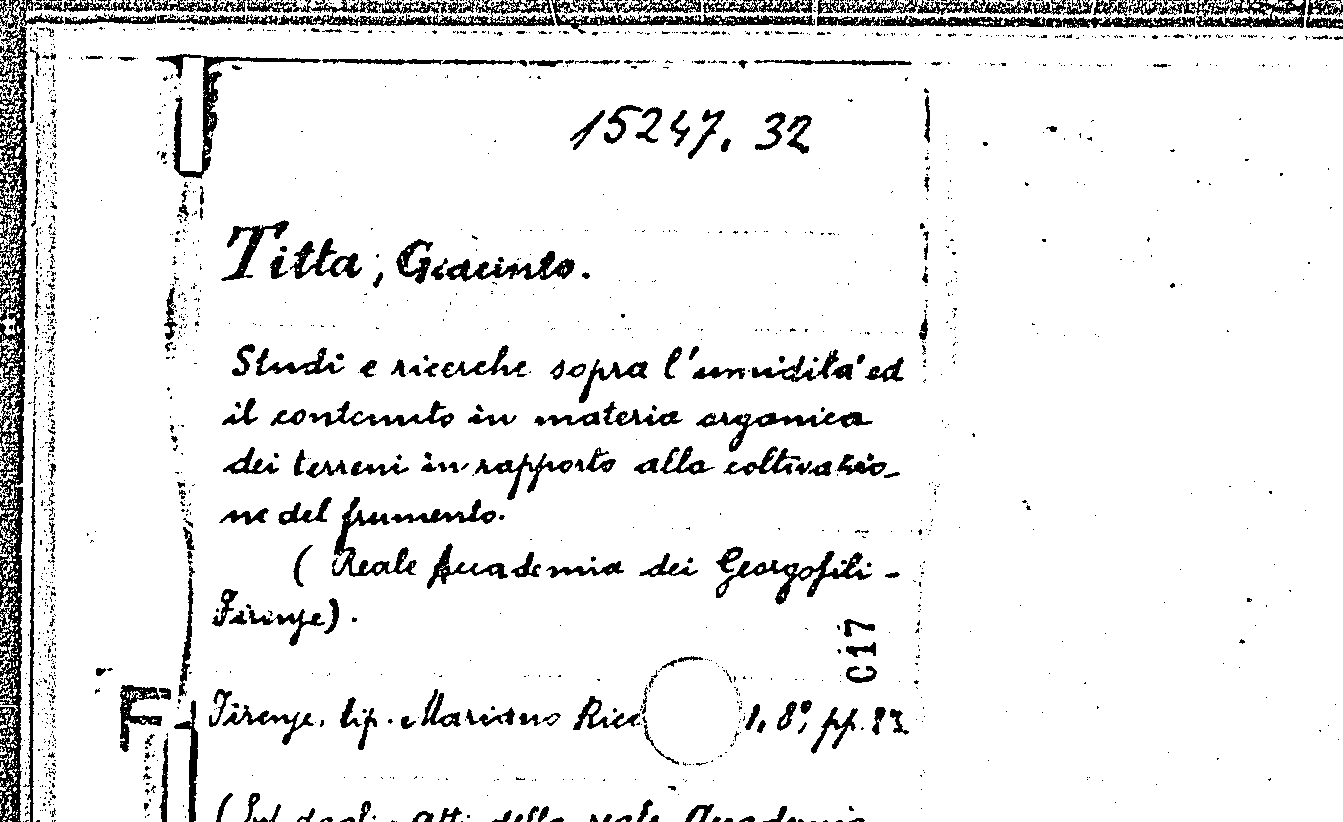 15247.32
Titta, Giacinto.
Studi e ricerche sopra l'umidità ed
il contenuto in materia organica
dei terreni in rapporto alla coltivazio-
ne del frumento.
( Reale Accademia dei Georgofili -
Firenze).
C17
Firenze, tip. Mariano Ricc 1, 8°, pp. 23
( dagli atti della reale Accademia